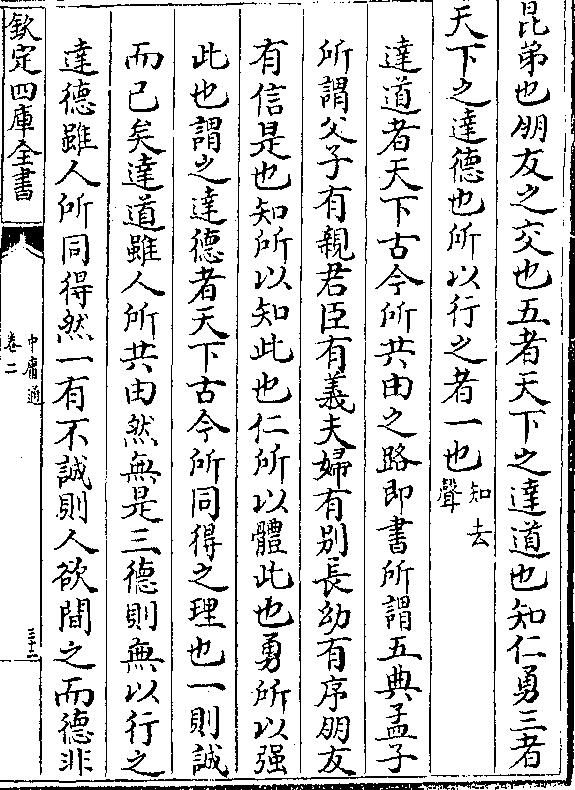 昆弟也朋友之交也五者天下之達道也知仁勇三者
天下之達德也所以行之者一也知去聲
達道者天下古今所共由之路即書所謂五典孟子
所謂父子有親君臣有義夫婦有别長幼有序朋友
有信是也知所以知此也仁所以體此也勇所以强
此也謂之達德者天下古今所同得之理也一則誠
而已矣達道雖人所共由然無是三德則無以行之
達德雖人所同得然一有不誠則人欲間之而德非
欽定四庫全書
中庸通
卷二
三十二